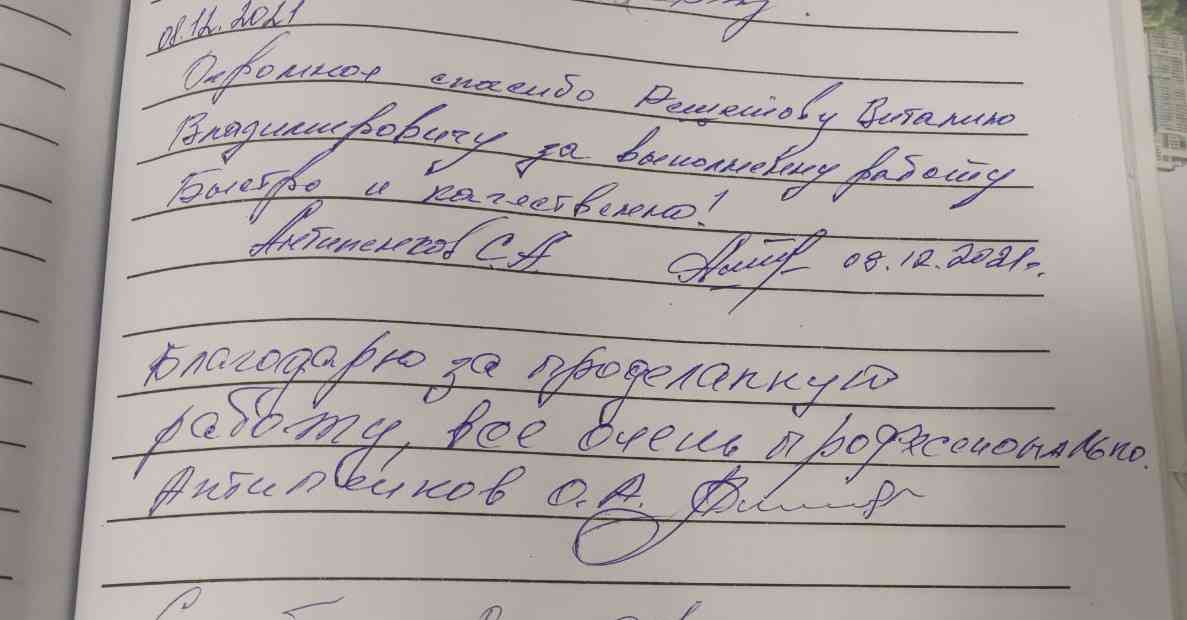 08.12.2021
Огромное спасибо Решетову Виталию
Владимировичу за выполнену работу
Быстро и качественно!
Антипенков С.А 08.12.2021г.
Благодарю за проделанную
работу, все очень профессионально.
Антипенков О.А.